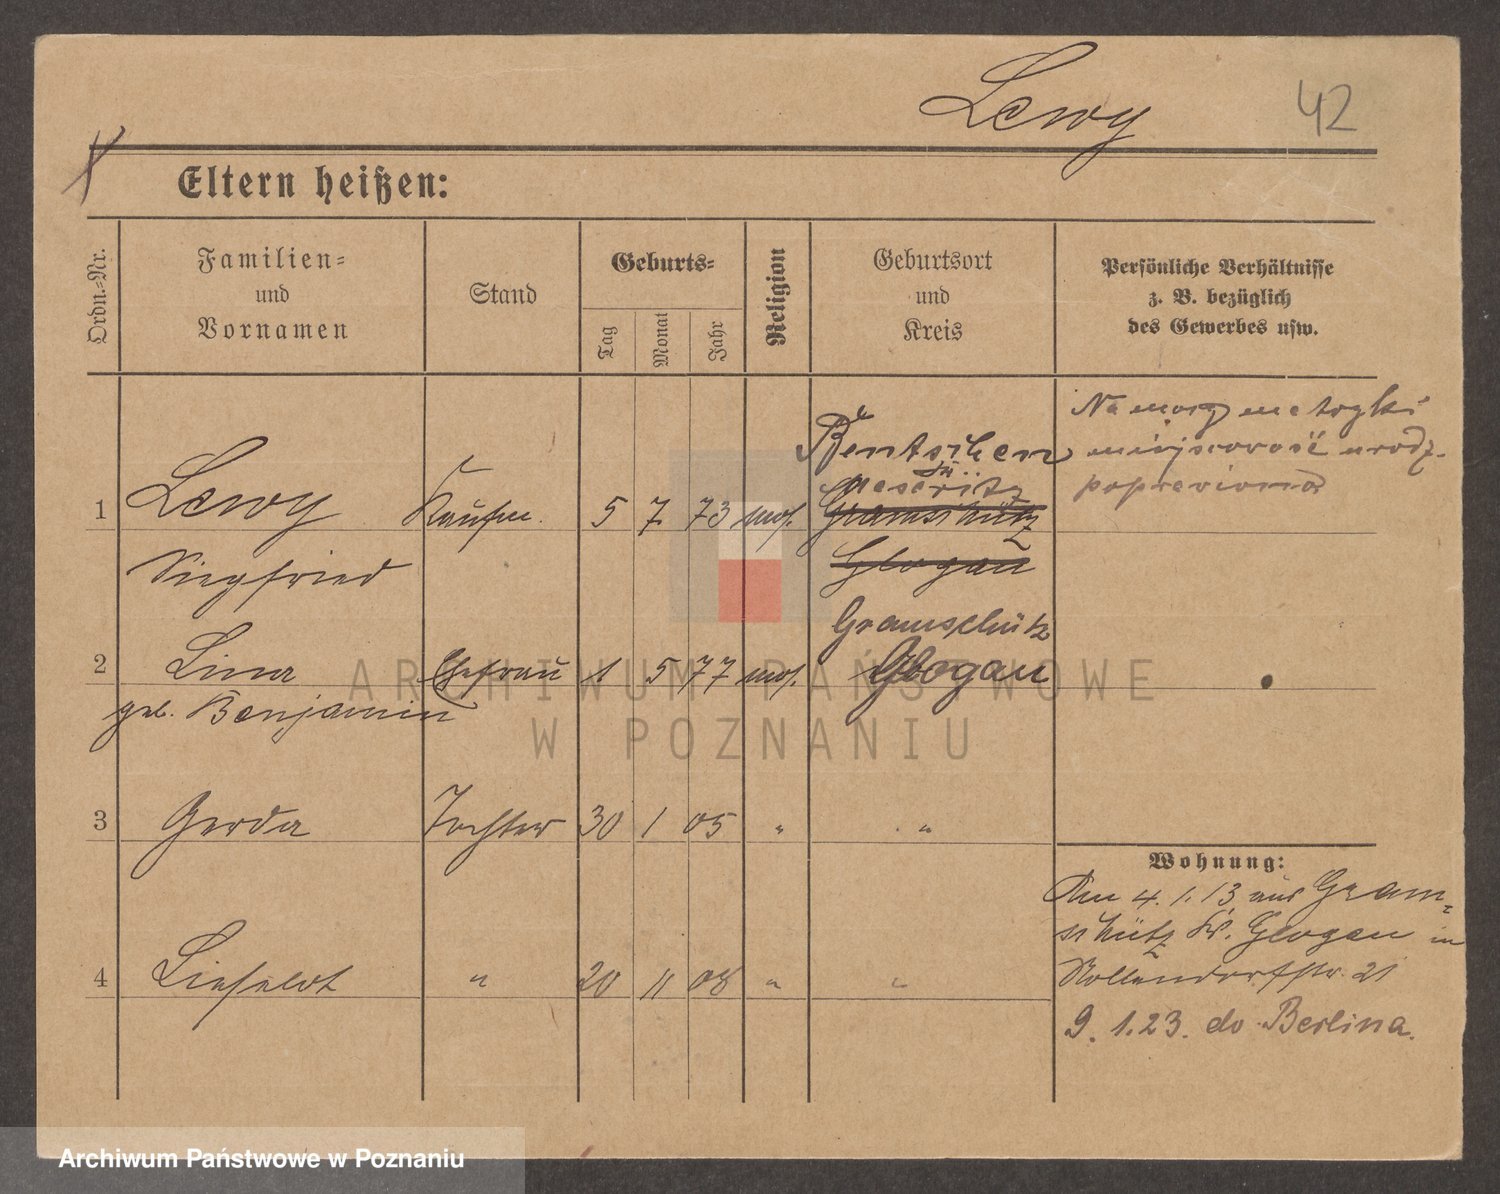 Lewy 42
Eltern heißen:
Ordn.-Nr.
Familien=
und
Vornamen
Stand
Geburts=
Tag
Monat
Jahr
Religion
Geburtsort
und
Kreis
Persönliche Verhältnisse
z. B. bezüglich
des Gewerbes usw.
1 Lewy Kaufm. 5 7 73 mos. Bentschen
Meseritz
Gramschütz
Siegfried Glogau
Na mocy metryki
miejscowość urodz.
poprawiona
2 Lina Ehefrau 1 5 77 mos. Gramschütz
Glogau
geb. Benjamin
3 Gerda Tochter 30 1 05 " "
4 " 20 11 08 " "
Wohnung:
Am 4. 1. 13 aus Gram=
schütz Kr. Glogau in
Nollendorfstr. 21
9. 1. 23. do Berlina.
ARCHIWUM PAŃSTWOWE
W POZNANIU
Archiwum Państwowe w Poznaniu